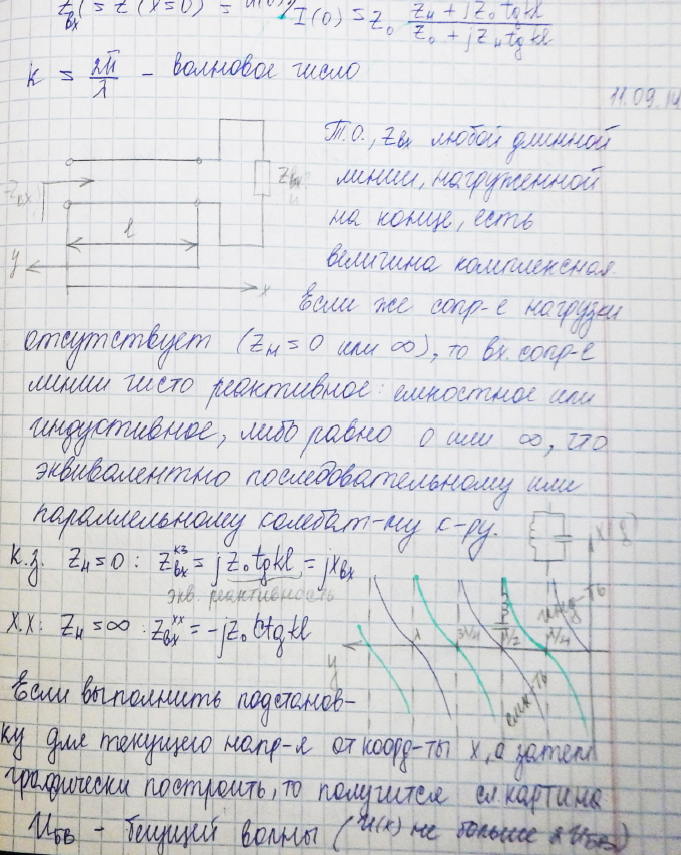 Zвх(= Z(x=0) = I(0) = Z₀ (Zн + jZ₀ tg kl)/(Z₀ + jZн tg kl)
k = 2π/λ – волновое число
11.09.14
Т.о., Zвх любой длинной
линии, нагруженной
на конце, есть
величина комплексная.
Если же сопр-е нагрузки
Zвх
l
y
x
отсутствует (Zн = 0 или ∞), то вх. сопр-е
линии чисто реактивное: емкостное или
индуктивное, либо равно 0 или ∞, что
эквивалентно последовательному или
параллельному колебат-му к-ру.
К.З. Zн = 0 : Zвхᴷᶻ = jZ₀ tg kl = jXвх
экв. реактивность
Х.Х: Zн = ∞ : Zвхˣˣ = -jZ₀ ctg kl
инд-ть
y λ 3λ/4 λ/2 λ/4
емк-ть
Если выполнить подстанов-
ку для текущего напр-я от коорд-ты x, а затем
графически построить, то получится сл. картина
Uбв – бегущей волны (U(x) не больше Uбв)